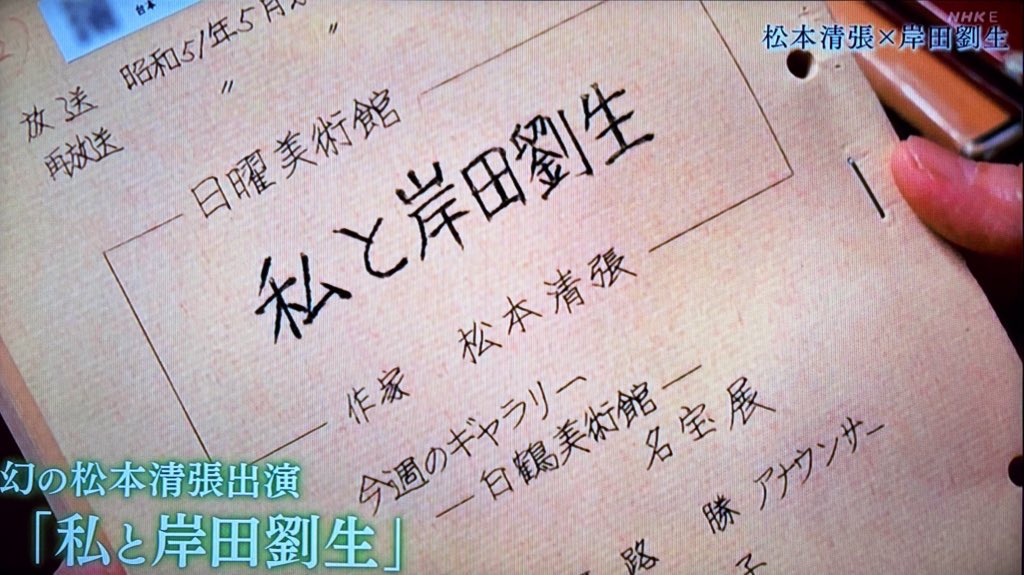 NHK E
松本清張×岸田劉生
台本
放送 昭和51年5月
再放送 〃 〃
日曜美術館
私と岸田劉生
作家 松本清張
今週のギャラリー
―白鶴美術館―
名宝展
路 勝 アナウンサー
子
幻の松本清張出演
「私と岸田劉生」